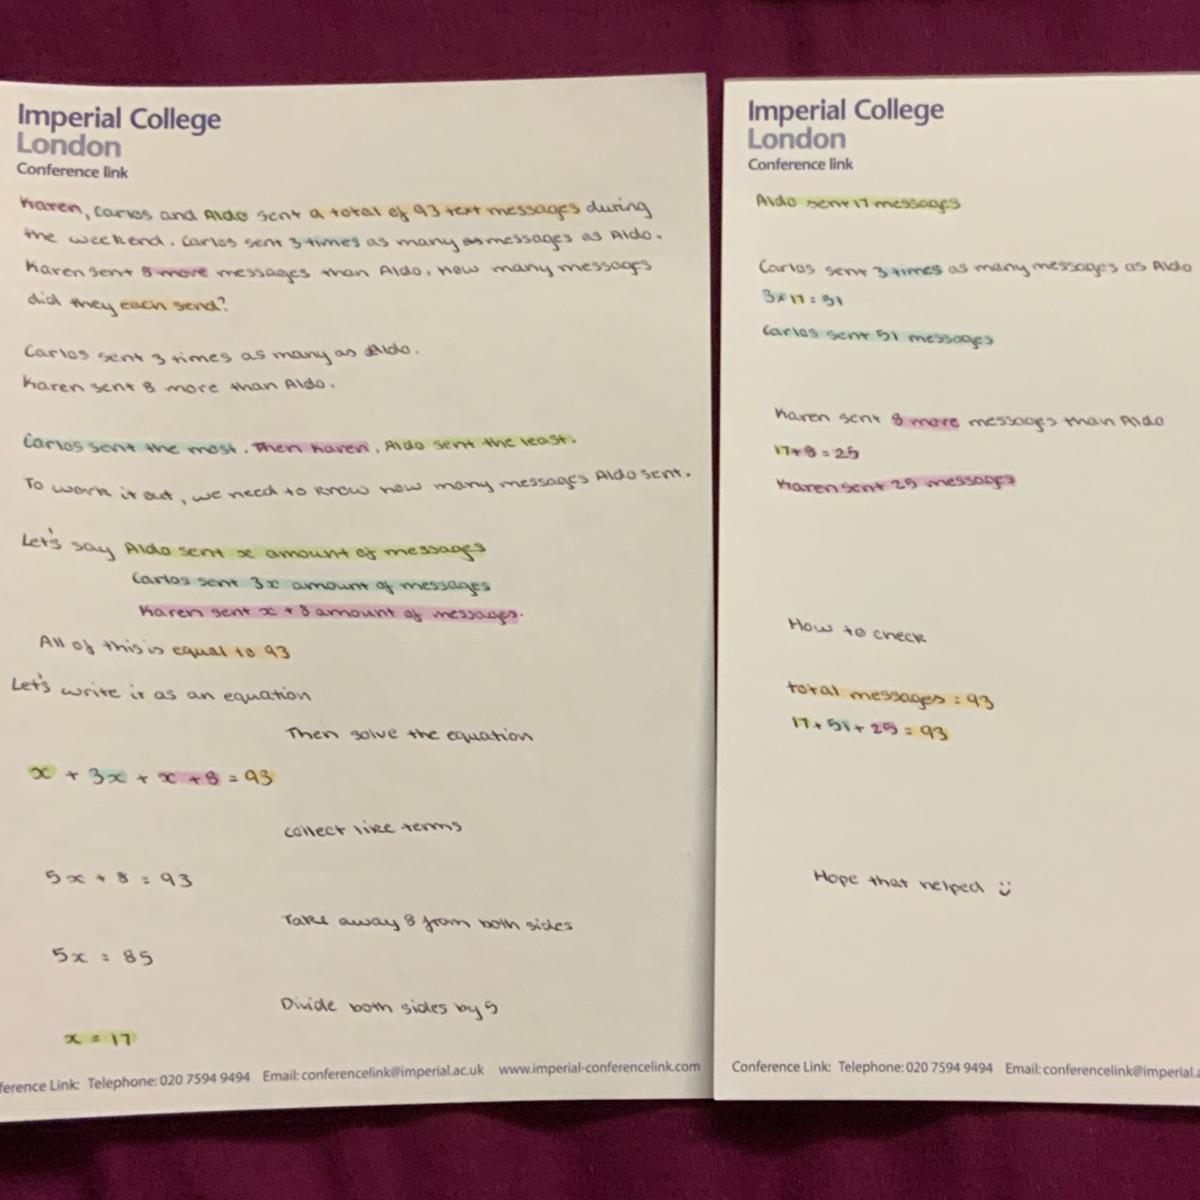 Imperial College
London
Conference link
Karen, Carlos and Aldo sent a total of 93 text messages during
the weekend. Carlos sent 3 times as many as messages as Aldo.
Karen sent 8 more messages than Aldo. How many messages
did they each send?
Carlos sent 3 times as many as Aldo.
Karen sent 8 more than Aldo.
Carlos sent the most. Then Karen. Aldo sent the least.
To work it out, we need to know how many messages Aldo sent.
Let's say Aldo sent x amount of messages
Carlos sent 3x amount of messages
Karen sent x + 8 amount of messages.
All of this is equal to 93
Let's write it as an equation
Then solve the equation
x + 3x + x + 8 = 93
collect like terms
5x + 8 = 93
Take away 8 from both sides
5x = 85
Divide both sides by 5
x = 17
ference Link: Telephone: 020 7594 9494 Email: conferencelink@imperial.ac.uk www.imperial-conferencelink.com
Imperial College
London
Conference link
Aldo sent 17 messages
Carlos sent 3 times as many messages as Aldo
3x17 = 51
Carlos sent 51 messages
Karen sent 8 more messages than Aldo
17+8 = 25
Karen sent 25 messages
How to check
total messages = 93
17 + 51 + 25 = 93
Hope that helped :)
Conference Link: Telephone: 020 7594 9494 Email: conferencelink@imperial.a